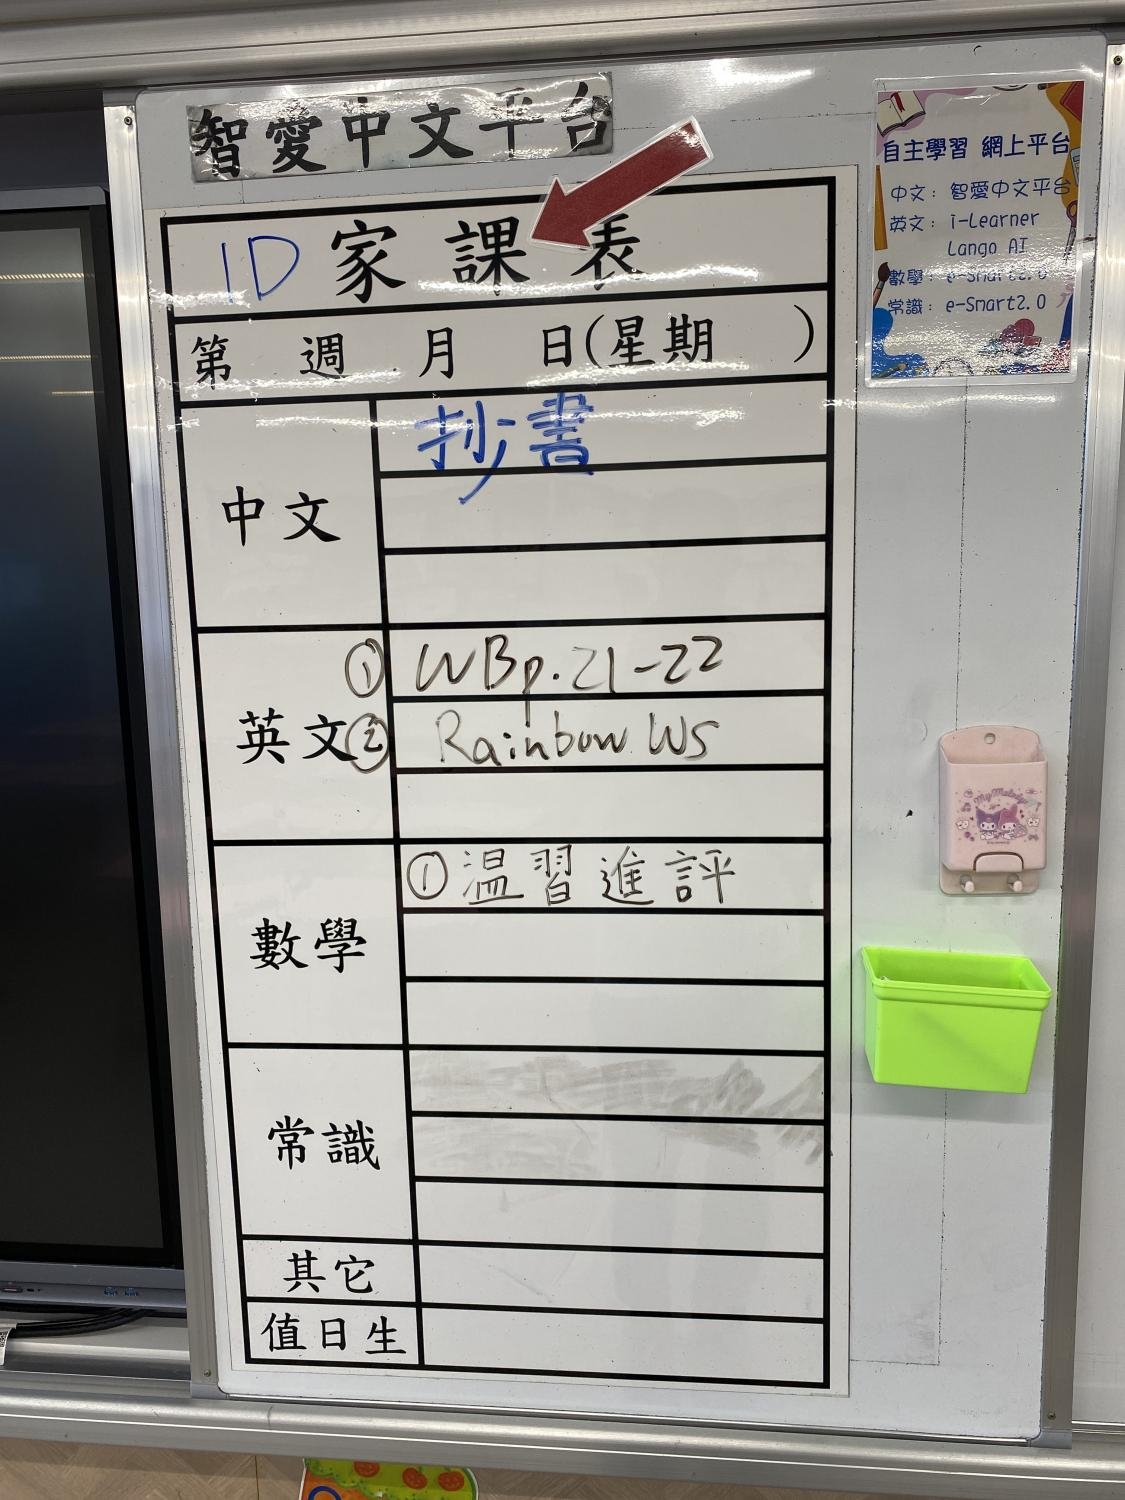 智愛中文平台
1D 家課表
第 週 月 日(星期 )
中文
抄書
英文
① WBp.21-22
② Rainbow WS
數學
①溫習進評
常識
其它
值日生
自主學習 網上平台
中文: 智愛中文平台
英文: i-Learner
Lango AI
數學: e-Smart2.0
常識: e-Smart2.0
My Melody